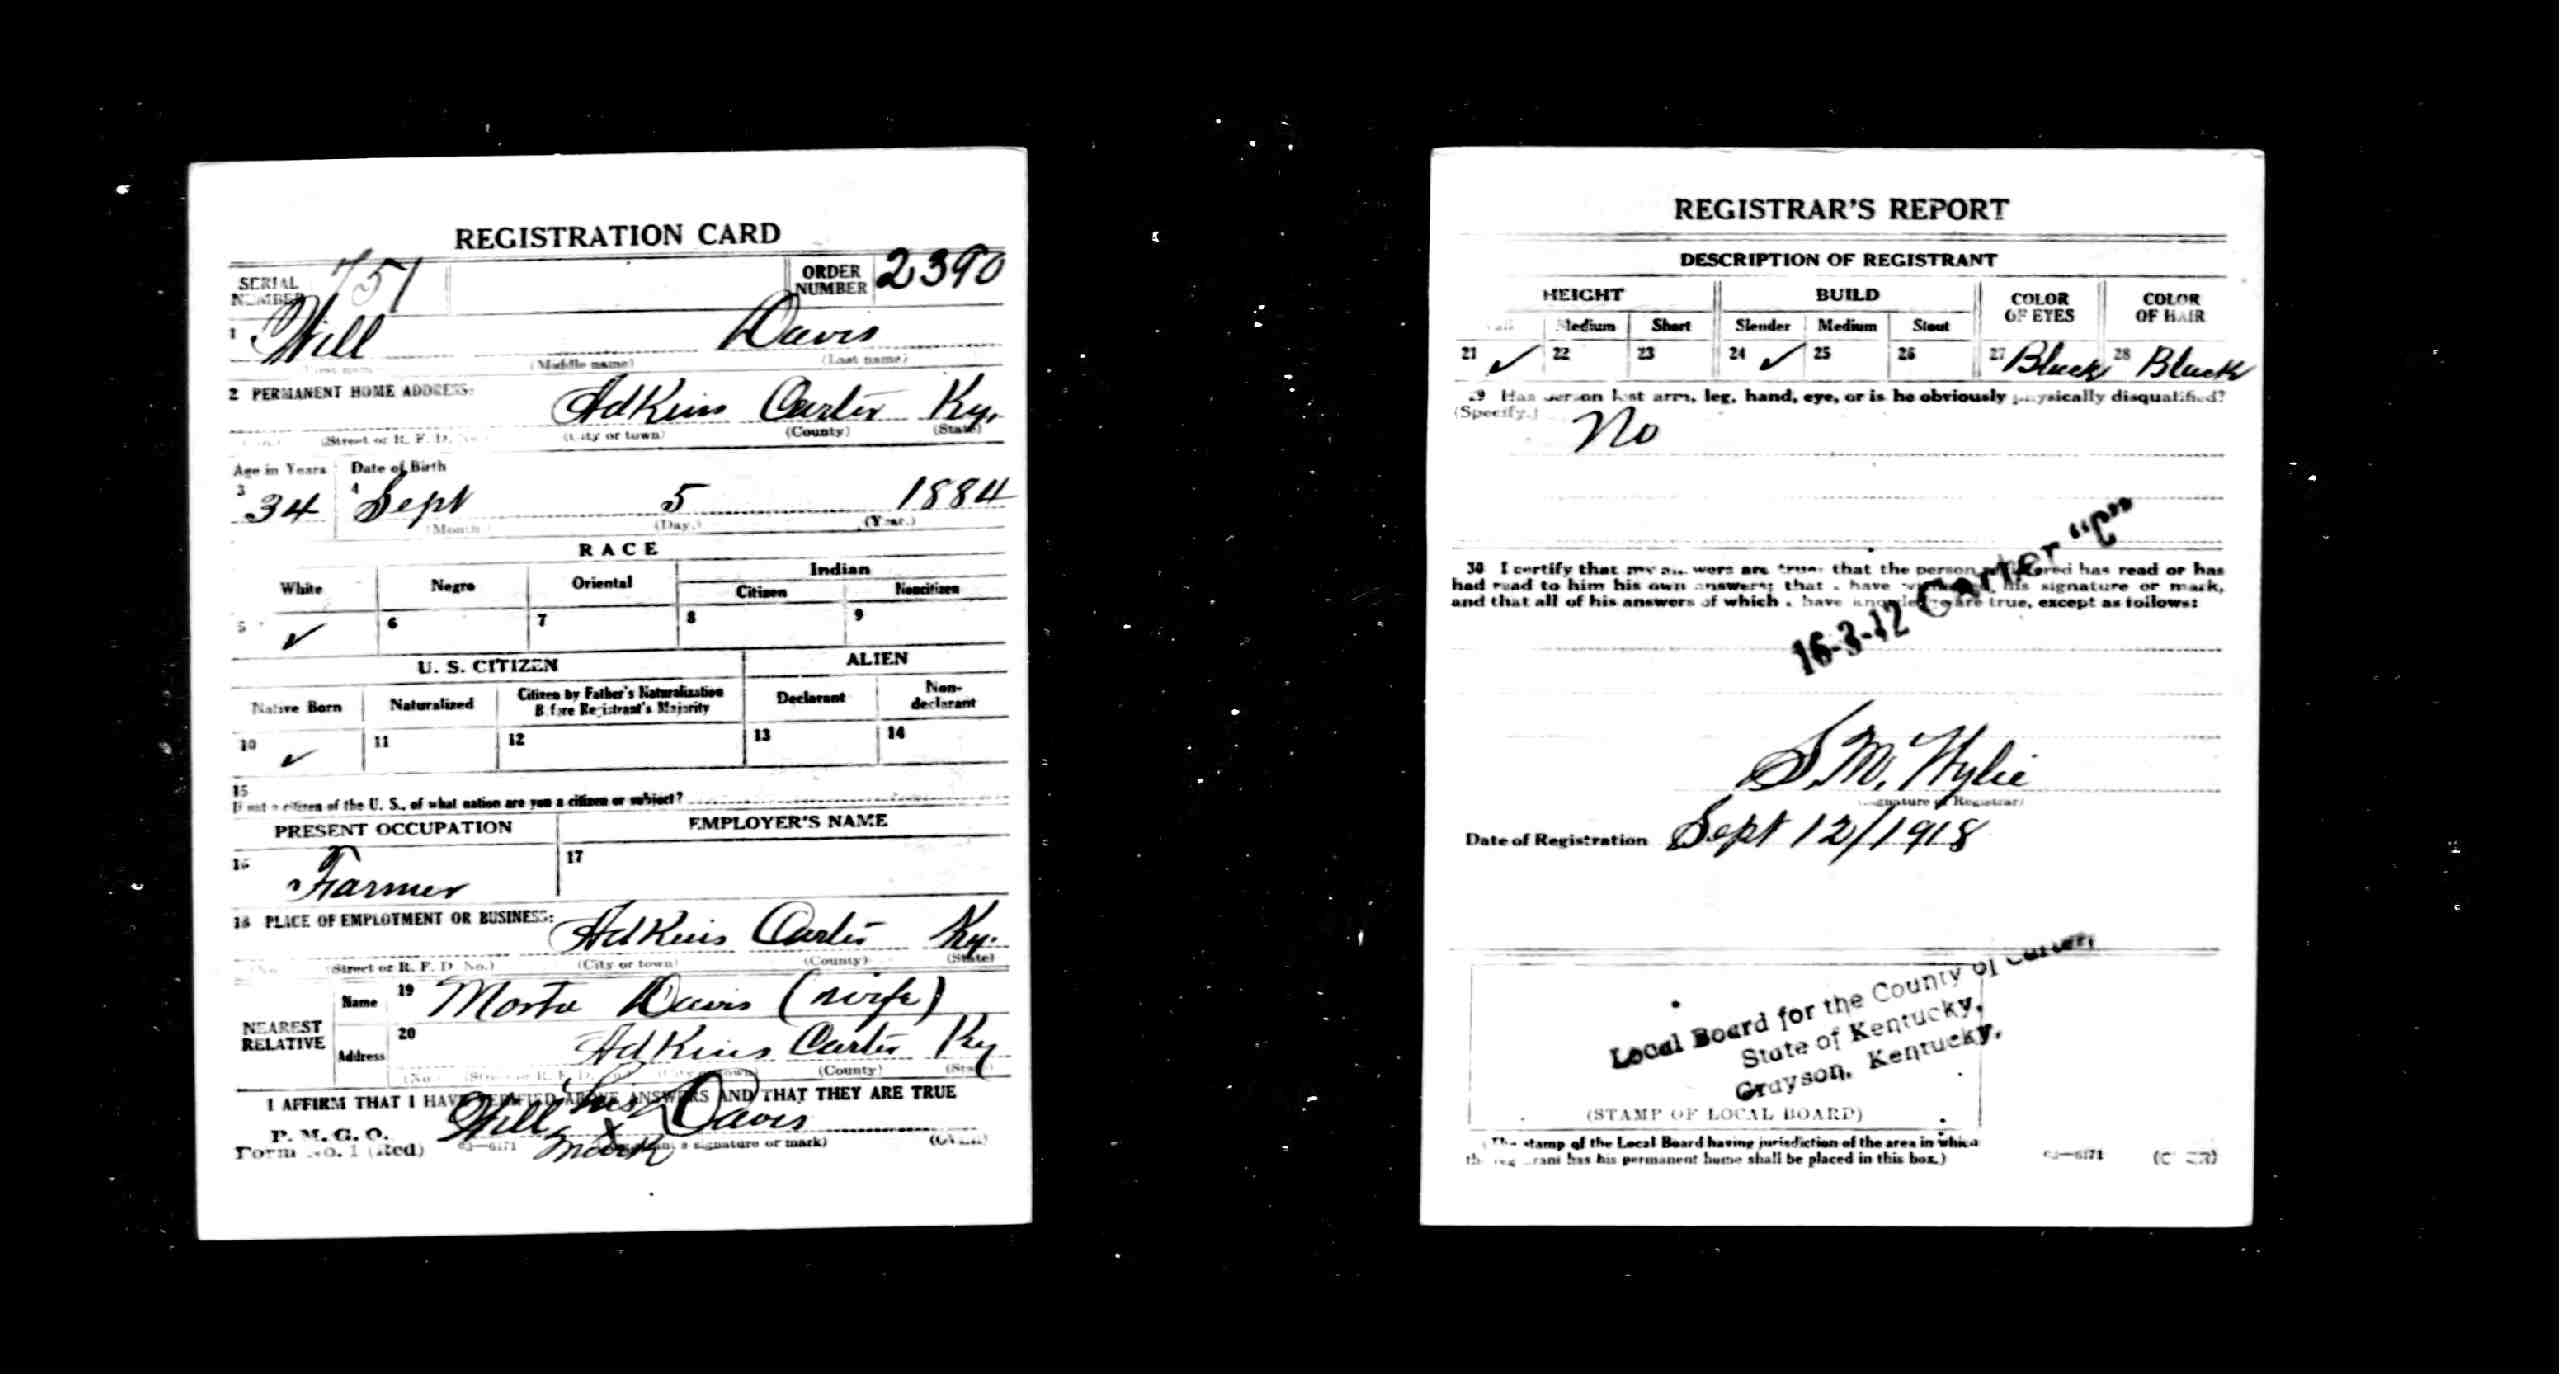 REGISTRATION CARD
SERIAL NUMBER 751 ORDER NUMBER 2390
1 Will Davis
(Middle name) (Last name)
2 PERMANENT HOME ADDRESS:
Adkins Carter Ky.
(Street or R. F. D. No.) (City or town) (County) (State)
Age in Years Date of Birth
3 34 4 Sept 5 1884
(Month) (Day.) (Year.)
RACE
White Negro Oriental Indian
Citizen Noncitizen
5 ✓ 6 7 8 9
U. S. CITIZEN ALIEN
Native Born Naturalized Citizen by Father's Naturalization Before Registrant's Majority Declarant Non-declarant
10 ✓ 11 12 13 14
15
If not a citizen of the U. S., of what nation are you a citizen or subject?
PRESENT OCCUPATION EMPLOYER'S NAME
16 Farmer 17
18 PLACE OF EMPLOYMENT OR BUSINESS:
Adkins Carter Ky.
(No.) (Street or R. F. D. No.) (City or town) (County) (State)
NEAREST RELATIVE
Name 19 Davis (wife)
Address 20 Adkins Carter Ky
(No.) (Street or R. F. D. No.) (City or town) (County) (State)
I AFFIRM THAT I HAVE VERIFIED ABOVE ANSWERS AND THAT THEY ARE TRUE
P. M. G. O.
Form No. 1 (Red)
Will his X mark Davis
signature or mark) (OVER)
REGISTRAR'S REPORT
DESCRIPTION OF REGISTRANT
HEIGHT BUILD COLOR OF EYES COLOR OF HAIR
Tall Medium Short Slender Medium Stout
21 ✓ 22 23 24 ✓ 25 26 27 Black 28 Black
29 Has person lost arm, leg, hand, eye, or is he obviously physically disqualified?
(Specify.)
No
30 I certify that my answers are true; that the person registered has read or has
had read to him his own answers; that I have witnessed his signature or mark,
and that all of his answers of which I have knowledge are true, except as follows:
16-3-12 Carter "C"
S. M. Wylie
(Signature of Registrar)
Date of Registration Sept 12/1918
Local Board for the County of Carter,
State of Kentucky,
Grayson, Kentucky.
(STAMP OF LOCAL BOARD)
(The stamp of the Local Board having jurisdiction of the area in which
the registrant has his permanent home shall be placed in this box.)
(OVER)